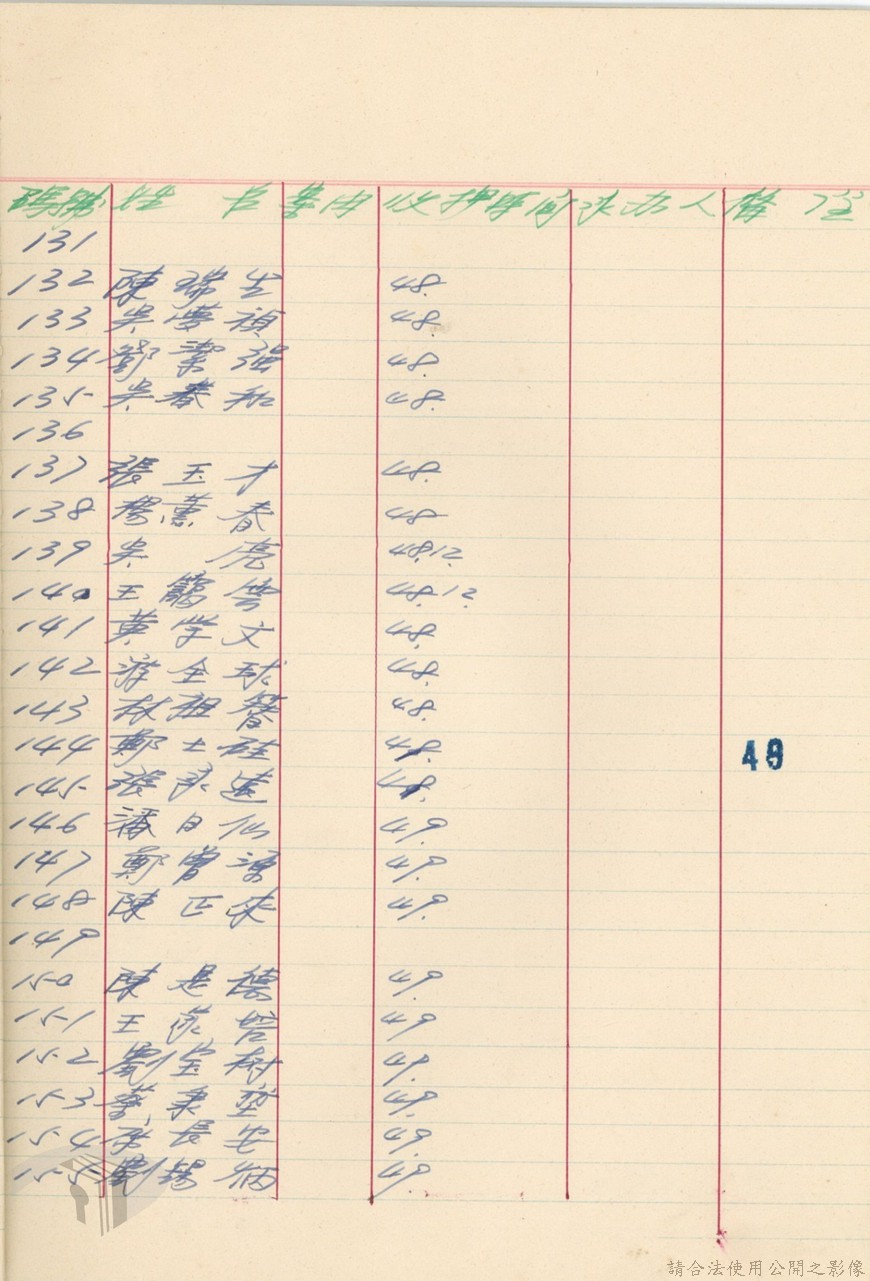 號碼 姓 名 案由 收押時間 承办人 備 注
131
132 陳瑞生 48.
133 吳夢禎 48.
134 鄧潔強 48.
135 吳春和 48.
136
137 張玉才 48.
138 楊蕙春 48
139 吳亮 48.12.
140 王靄雲 48.12.
141 黃學文 48.
142 游全球 48.
143 林祖簪 48.
144 鄭士硅 48.
145 張永遠 48.
146 潘日仙 49.
147 鄭曾 49.
148 陳正來 49.
149
150 陳是德 49.
151 王家培 49
152 劉宝樹 49.
153 蔡秉堃 49.
154 長安 49.
155 劉錫炳 49
49
請合法使用公開之影像